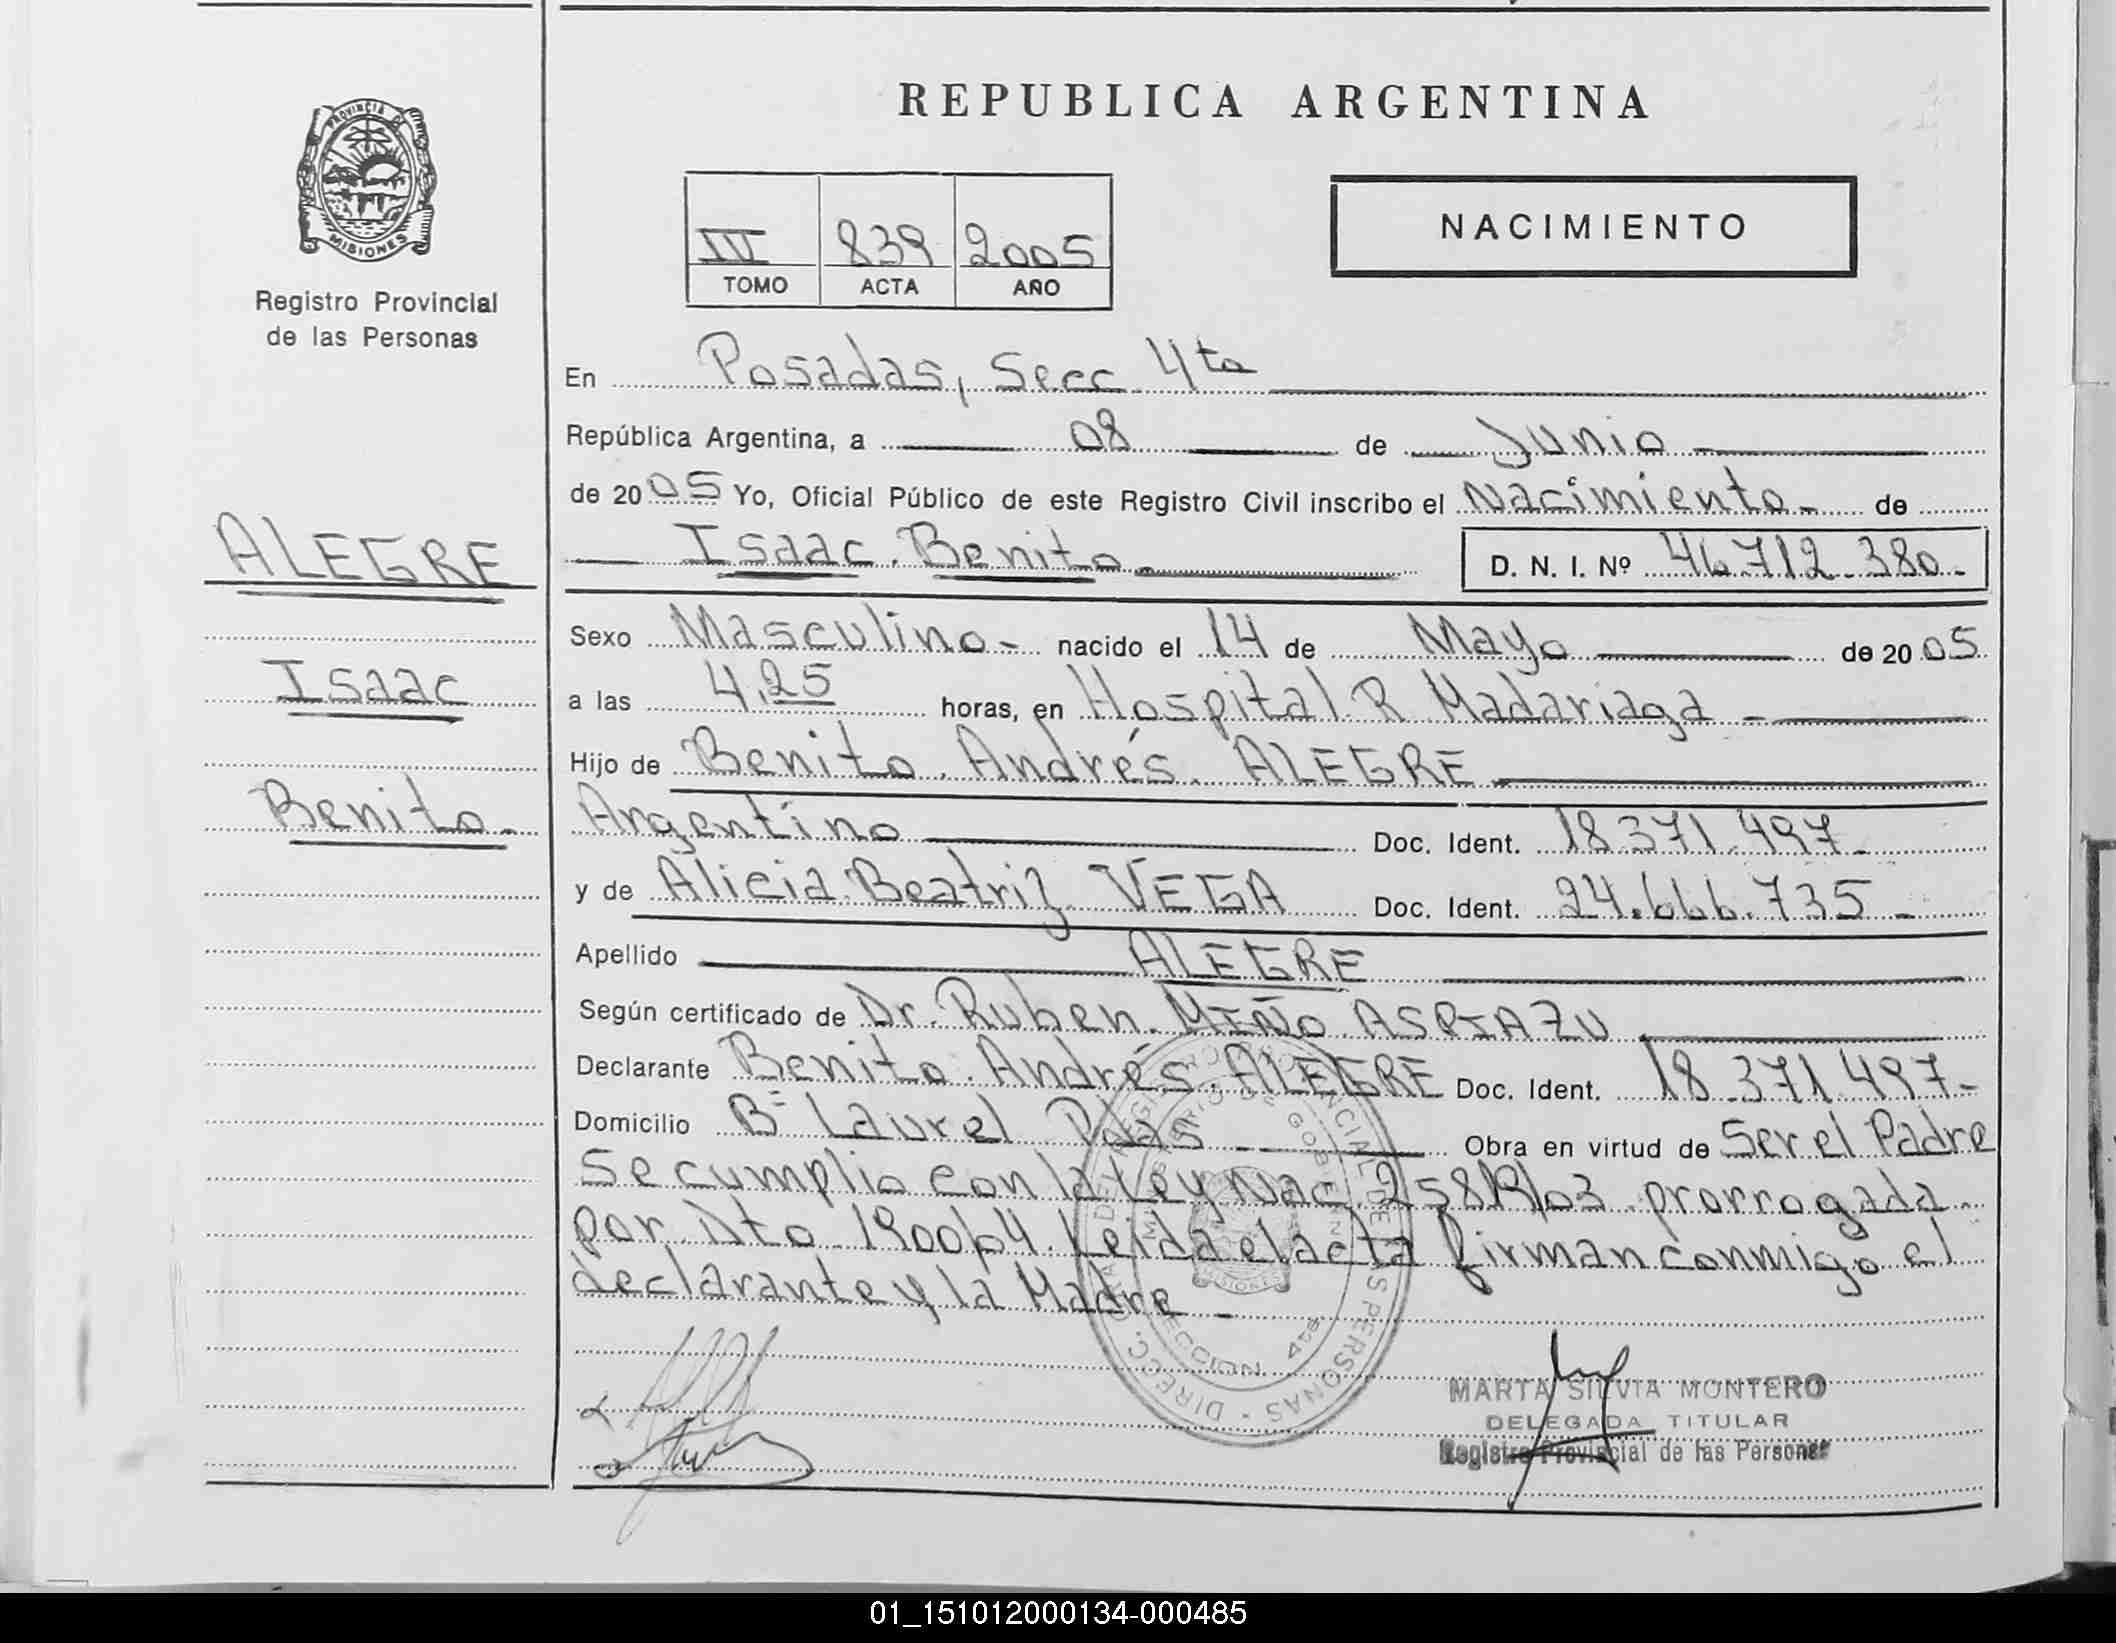 REPUBLICA ARGENTINA
PROVINCIA DE
MISIONES
Registro Provincial
de las Personas
NACIMIENTO
IV 839 2005
TOMO ACTA AÑO
En Posadas, Secc 4ta
República Argentina, a 08 de Junio
de 2005 Yo, Oficial Público de este Registro Civil inscribo el Nacimiento - de
Isaac Benito. D. N. I. Nº 46.712.380.-
ALEGRE
Isaac
Benito.
Sexo Masculino - nacido el 14 de Mayo de 2005
a las 4,25 horas, en Hospital R Madariaga -
Hijo de Benito Andrés ALEGRE
Argentino Doc. Ident. 18.371.497.-
y de Alicia Beatriz VEGA Doc. Ident. 24.666.735 -
Apellido ALEGRE
Según certificado de Dr. Ruben MIÑO ASPIAZU
Declarante Benito Andrés ALEGRE Doc. Ident. 18.371.497-
Domicilio Bº Laurel Pdas - Obra en virtud de Ser el Padre
Se cumplio con la Ley Nac. 25819/03 prorrogada
por Dto 1900/04. Leida el acta firman conmigo el
declarante y la Madre -
DIRECC. GRAL DEL REGISTRO PROVINCIAL DE LAS PERSONAS
MINISTERIO DE GOBIERNO
MISIONES
SECCION 4ta
MARTA SILVIA MONTERO
DELEGADA TITULAR
Registro Provincial de las Personas
01_151012000134-000485